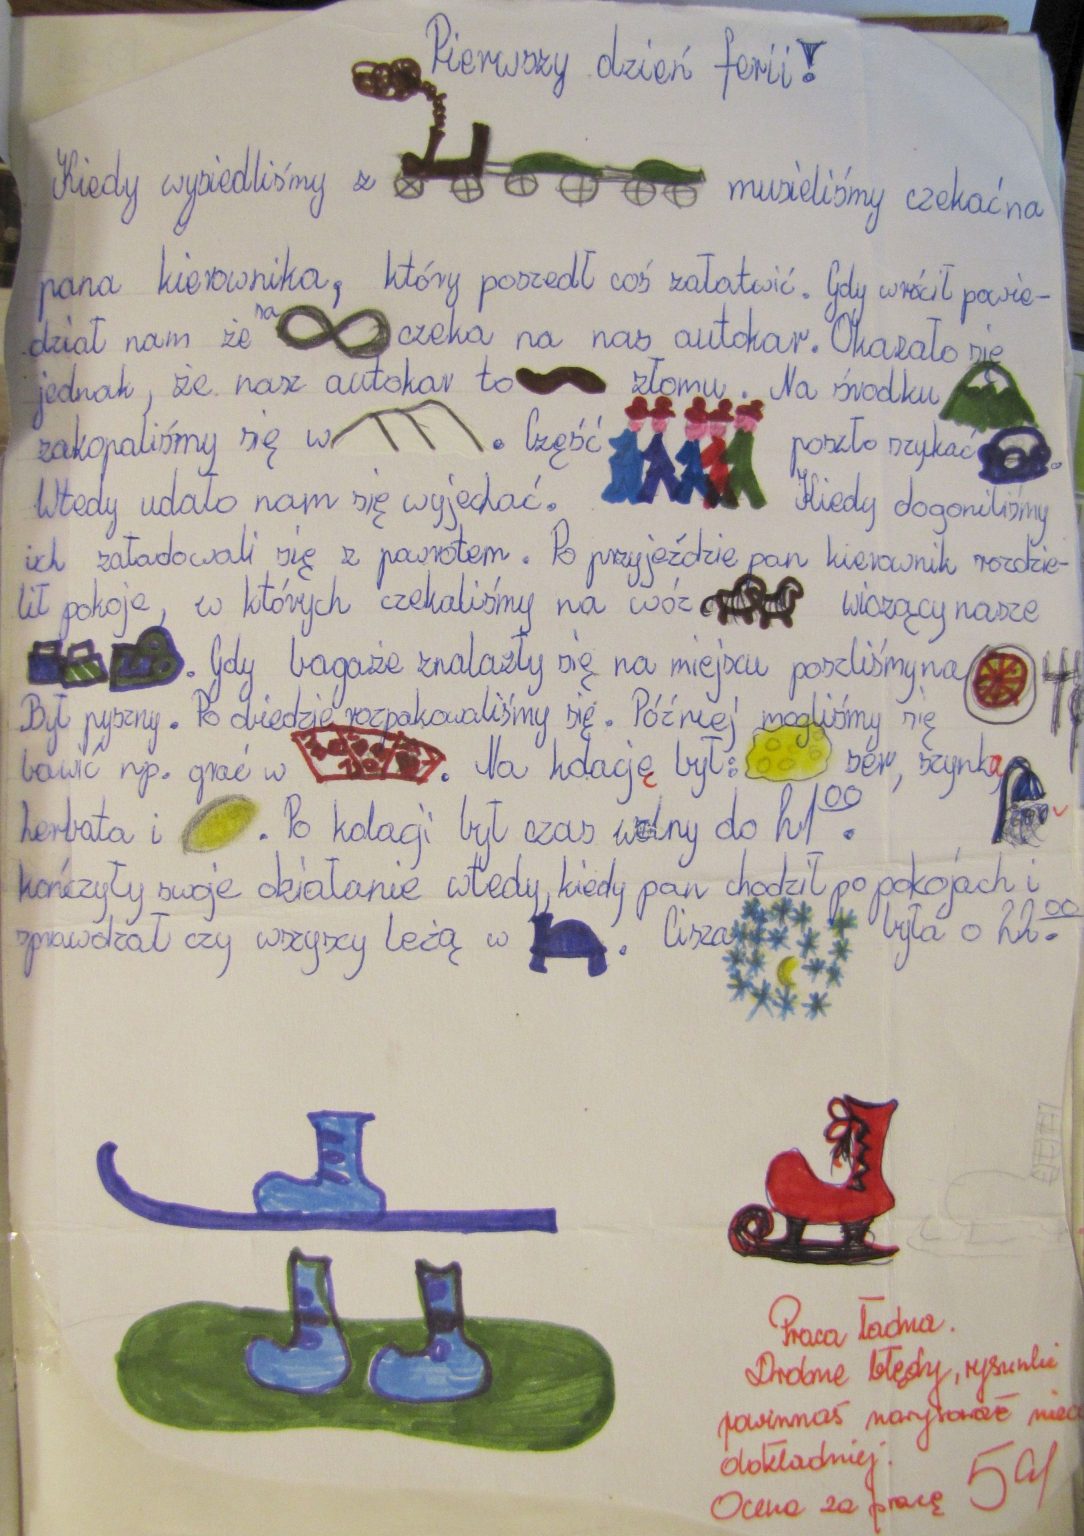 Pierwszy dzień ferii!
Kiedy wysiedliśmy z musieliśmy czekać na
pana kierownika, który poszedł coś załatwić. Gdy wrócił powie-
dział nam że na czeka na nas autokar. Okazało się
jednak, że nasz autokar to złomu. Na środku
zakopaliśmy się w . Część poszło szukać .
Wtedy udało nam się wyjechać. Kiedy dogoniliśmy
ich załadowali się z pawrotem. Po przyjeździe pan kierownik rozdzie-
lił pokoje, w których czekaliśmy na wóz wiozący nasze
. Gdy bagaże znalazły się na miejscu poszliśmy na
Był pyszny. Po obiedzie rozpakowaliśmy się. Później mogliśmy się
bawić np. grać w . Na kolację był: ser, szynka
herbata i . Po kolagi był czas wolny do 21⁰⁰.
kończyły swoje działanie wtedy, kiedy pan chodził po pokojach i
sprawdzał czy wszyscy leżą w . Cisza była o 22⁰⁰.
Praca ładna.
Drobne błędy, rysunki
powinnaś narysować nieco
dokładniej.
Ocena za pracę 5